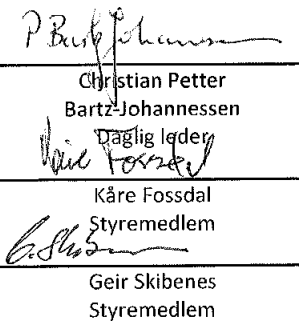 P Bartz Johannessen
Christian Petter
Bartz-Johannessen
Daglig leder
Kåre Fossdal
Kåre Fossdal
Styremedlem
G. Skibenes
Geir Skibenes
Styremedlem